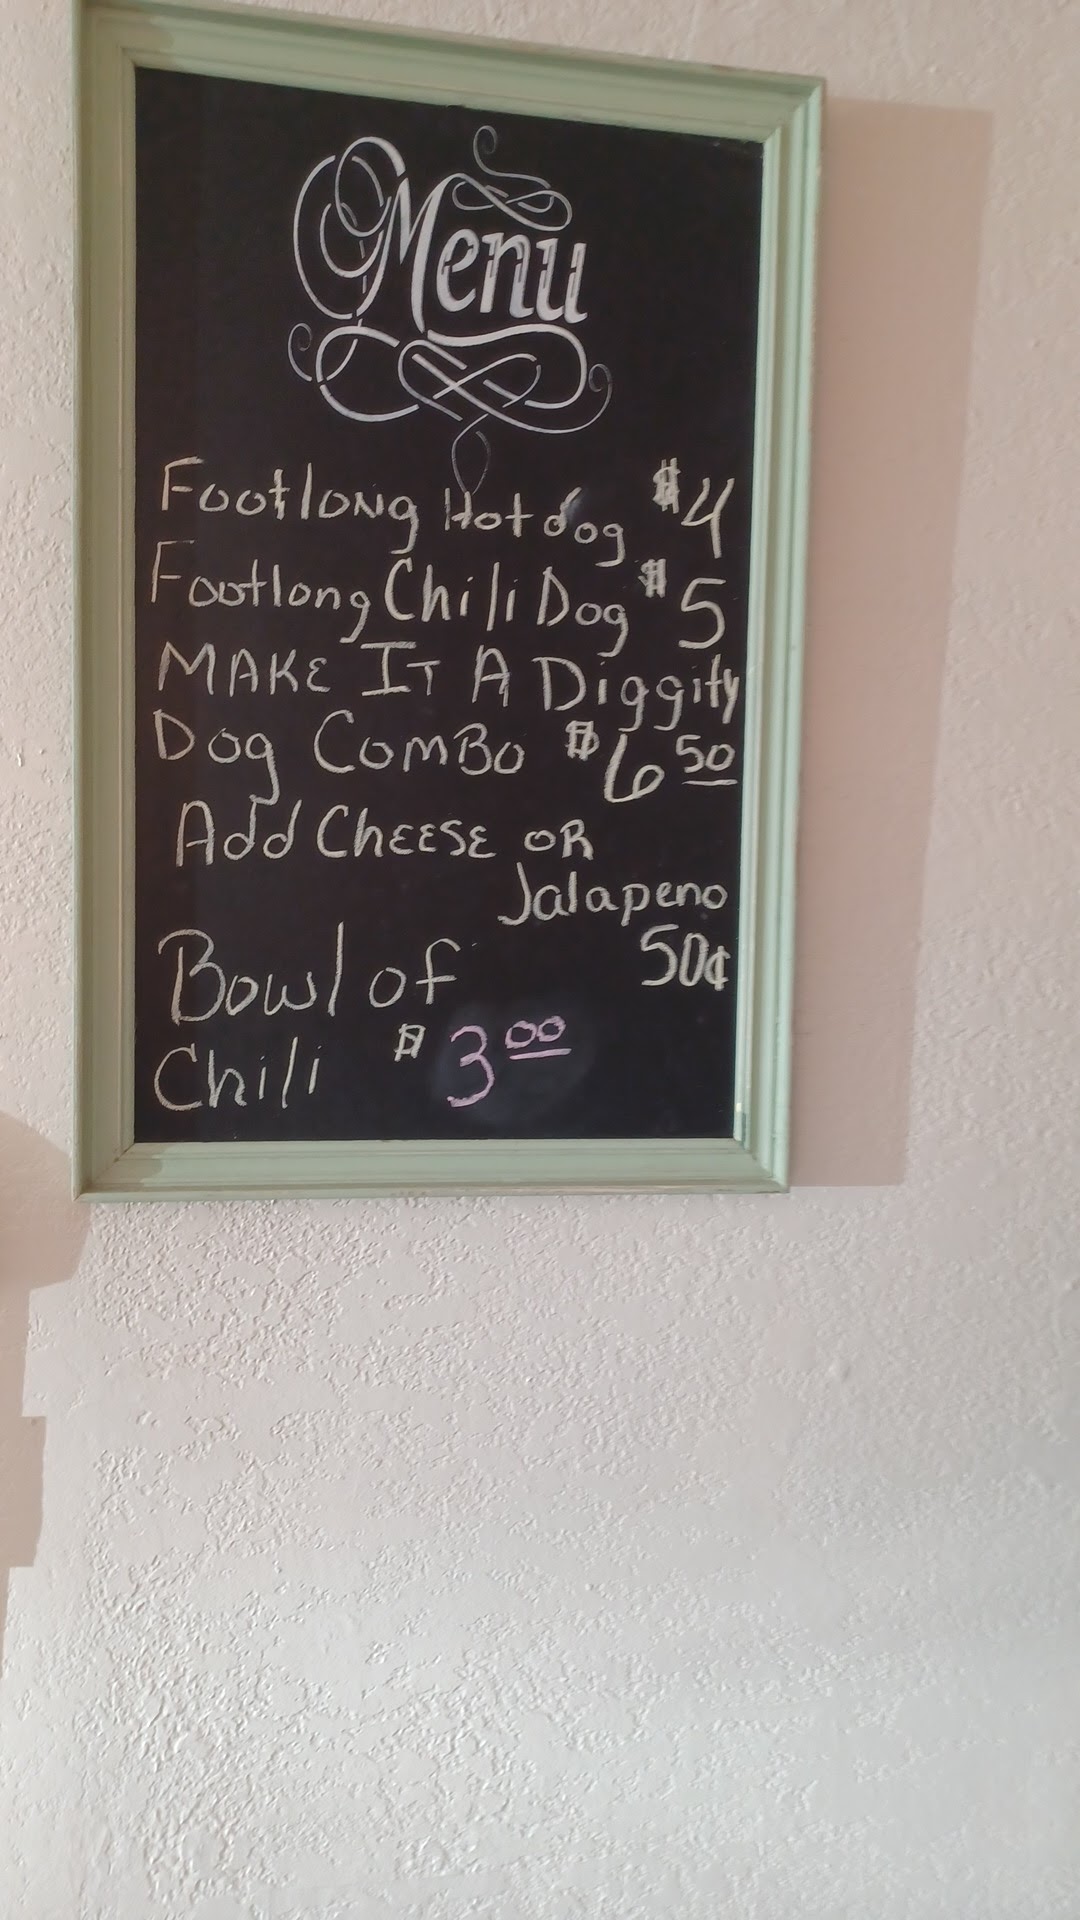 Menu
Footlong Hot dog $4
Footlong Chili Dog $5
MAKE IT A Diggity
Dog ComBo $6 50
Add CHEESE OR
Jalapeno
50¢
Bowl of
Chili $3 00